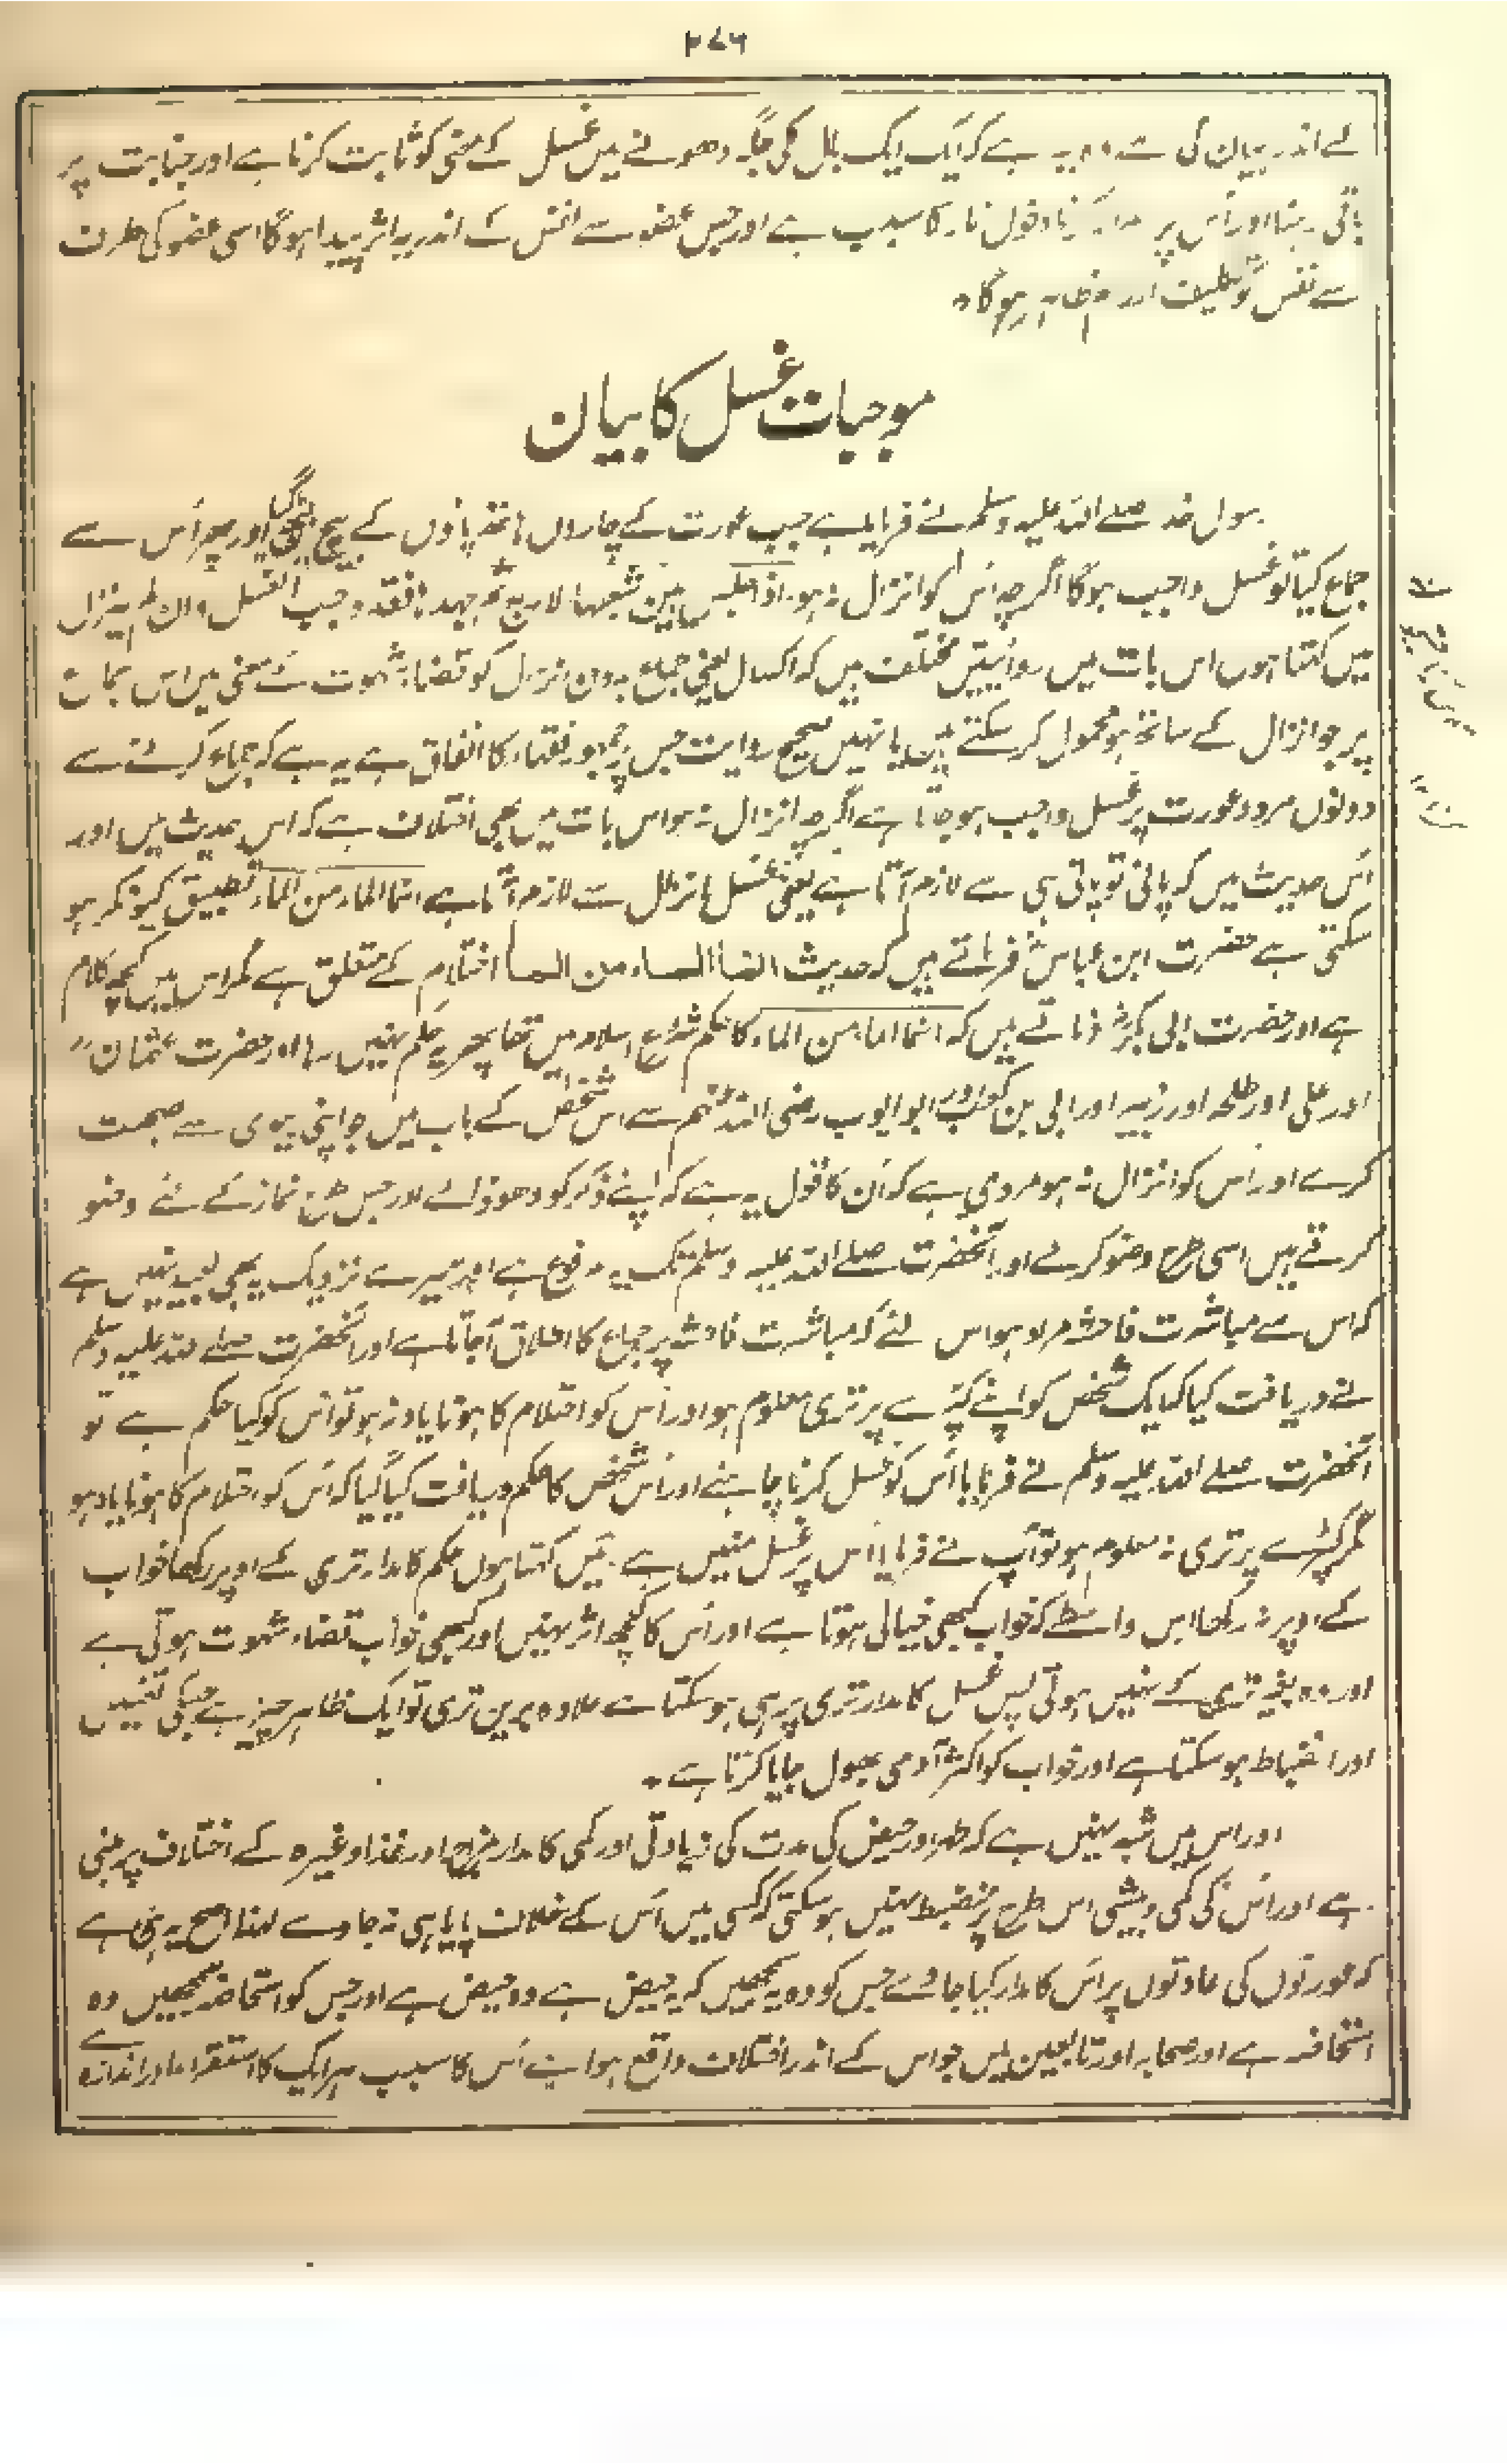 ۲۷۶
کے اندر بیان کی ہے یہ ہے کہ ایک ایک بال کی جگہ دھونے میں غسل کے معنی کو ثابت کرنا ہے اور جنابت پر
باقی رہنا اور اُس پر نار کا سبب ہے اور جس عضو سے نفس کے اندر یہ اثر پیدا ہوگا اسی عضو کی طرف
سے نفس کو تکلیف اور ظاہر ہوگا۔
موجبات غسل کا بیان
رسول خدا صلے اللہ علیہ وسلم نے فرمایا ہے جب عورت کے چاروں ہاتھ پاؤں کے بیچ بیٹھ گیا اور پھر اُس سے
جماع کیا تو غسل واجب ہوگا اگرچہ اُس کو انزال نہ ہو۔ اذا جلس بین شعبہا الاربع ثم جہدہا فقد وجب الغسل وان لم ینزل
میں کہتا ہوں اس بات میں روائیتیں مختلف ہیں کہ اکسال یعنی جماع بدون انزال کو قضاء شہوت کے معنی میں اس جماع
پر جو انزال کے ساتھ ہو محمول کر سکتے ہیں یا نہیں صحیح روایت جس پر جمہور فقہاء کا اتفاق ہے یہ ہے کہ جماع کرنے سے
دونوں مرد و عورت پر غسل واجب ہو جاتا ہے اگرچہ انزال نہ ہو اس بات میں بھی اختلاف ہے کہ اس حدیث میں اور
اُس حدیث میں کہ پانی تو پانی ہی سے لازم آتا ہے یعنی غسل انزال سے لازم آتا ہے انما الماء من الماء تطبیق کیونکر ہو
سکتی ہے حضرت ابن عباسؓ فرماتے ہیں کہ حدیث انما الماء من الماء احتلام کے متعلق ہے مگر اس میں کچھ کلام
ہے اور حضرت ابی فرماتے ہیں کہ انما الماء من الماء کا حکم شروع اسلام میں تھا پھر یہ حکم نہیں رہا اور حضرت عثمان
اور علی اور طلحہ اور زبیر اور ابی بن کعب اور ابو ایوب رضی اللہ عنہم سے اس شخص کے باب میں جو اپنی بیوی سے صحبت
کرے اور اُس کو انزال نہ ہو مروی ہے کہ اُن کا قول یہ ہے کہ اپنے ذکر کو دھو ڈالے اور جس طرح نماز کے لئے وضو
کرتے ہیں اسی طرح وضو کرلے اور آنحضرت صلے اللہ علیہ وسلم تک یہ مرفوع ہے اور میرے نزدیک یہ بھی بعید نہیں ہے
کہ اس سے مباشرت فاحشہ مراد ہو اس لئے کہ مباشرت فاحشہ پر جماع کا اطلاق آجاتا ہے اور آنحضرت صلے اللہ علیہ وسلم
نے دریافت کیا گیا ایک شخص کو اپنے کپڑے پر تری معلوم ہو اور اُس کو احتلام کا ہونا یاد نہ ہو تو اُس کو کیا حکم ہے تو
آنحضرت صلے اللہ علیہ وسلم نے فرمایا اُس کو غسل کرنا چاہئے اور اُس شخص کا حکم دریافت کیا گیا کہ اُس کو احتلام کا ہونا یاد ہو
مگر کپڑے پر تری نہ معلوم ہو تو آپ نے فرمایا اُس پر غسل نہیں ہے۔ میں کہتا ہوں حکم کا مدار تری کے اوپر رکھا خواب
کے اوپر نہ رکھا اس واسطے کہ خواب کبھی خیالی ہوتا ہے اور اُس کا کچھ اثر نہیں اور کبھی خواب قضاء شہوت ہوتی ہے
اور وہ بغیر تری کے نہیں ہوتی پس غسل کا مدار تری پر ہی ہو سکتا ہے علاوہ بریں تری تو ایک ظاہر چیز ہے جسکی تعیین
اور انضباط ہو سکتا ہے اور خواب کو اکثر آدمی بھول جایا کرتا ہے۔
اور اس میں شبہ نہیں ہے کہ طہر اور حیض کی مدت کی زیادتی اور کمی کا مدار مزاج اور غذا وغیرہ کے اختلاف پر مبنی
ہے اور اُس کی کمی و بیشی اس طرح پر منضبط نہیں ہو سکتی کہ کسی میں اُس کے خلاف پایا ہی نہ جاوے لہذا اصح یہ ہی ہے
کہ عورتوں کی عادتوں پر اُس کا مدار کیا جاوے جس کو وہ یہ سمجھیں کہ یہ حیض ہے وہ حیض ہے اور جس کو استحاضہ سمجھیں وہ
استحاضہ ہے اور صحابہ اور تابعین میں جو اس کے اندر اختلاف واقع ہوا ہے اُس کا سبب ہر ایک کا استقرا اور اندازہ ہے